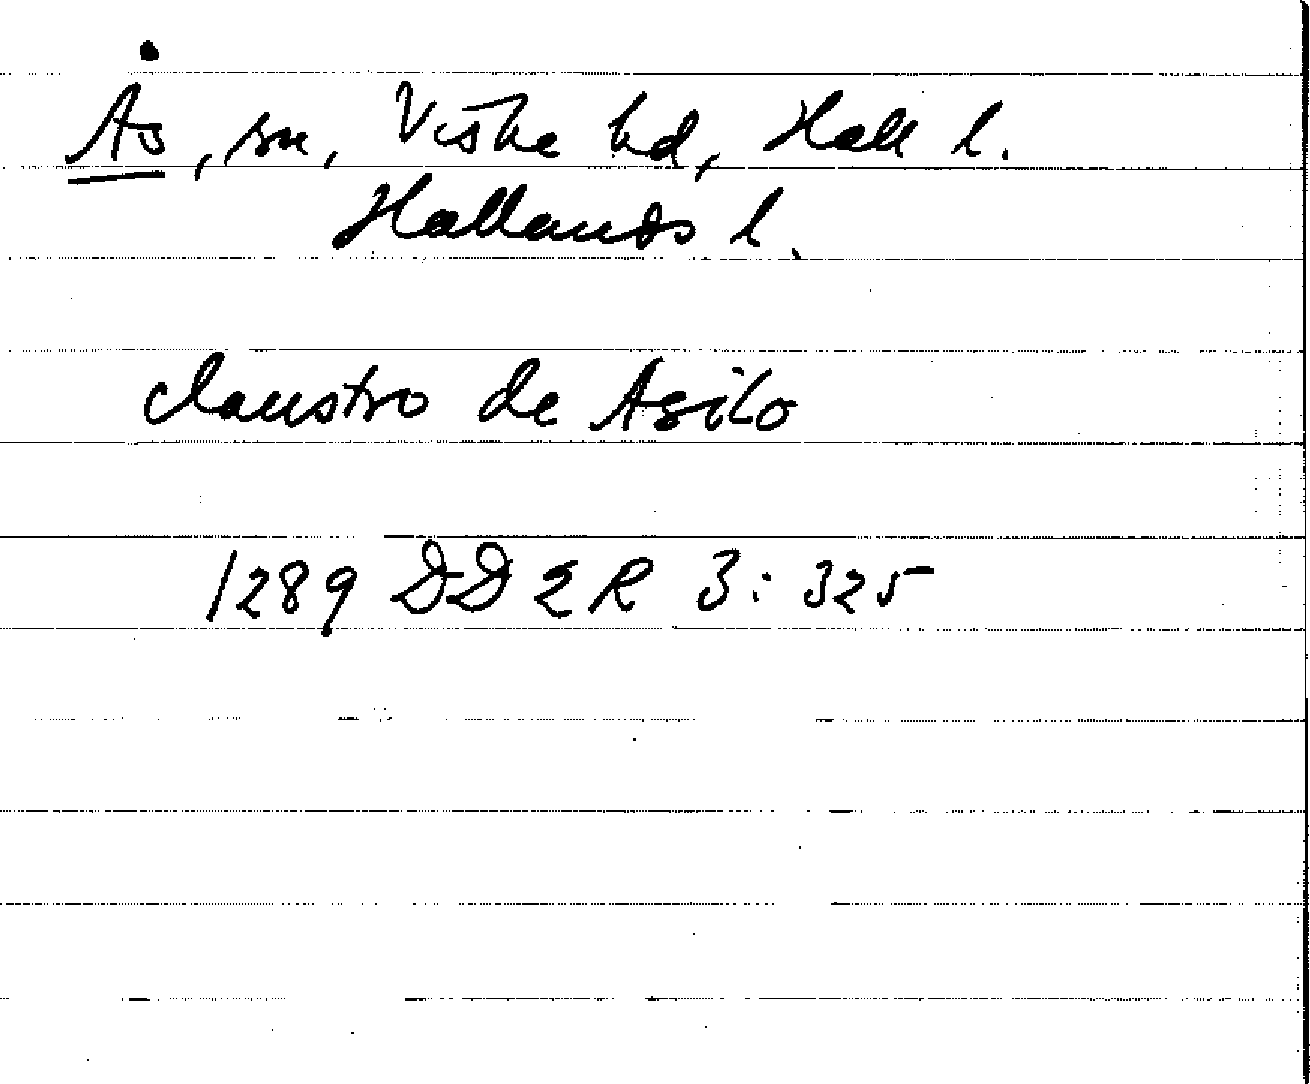 Ås, sn, Viske hd, Hall l.
Hallands l.
claustro de Asilo
1289 DD 2 R 3: 325